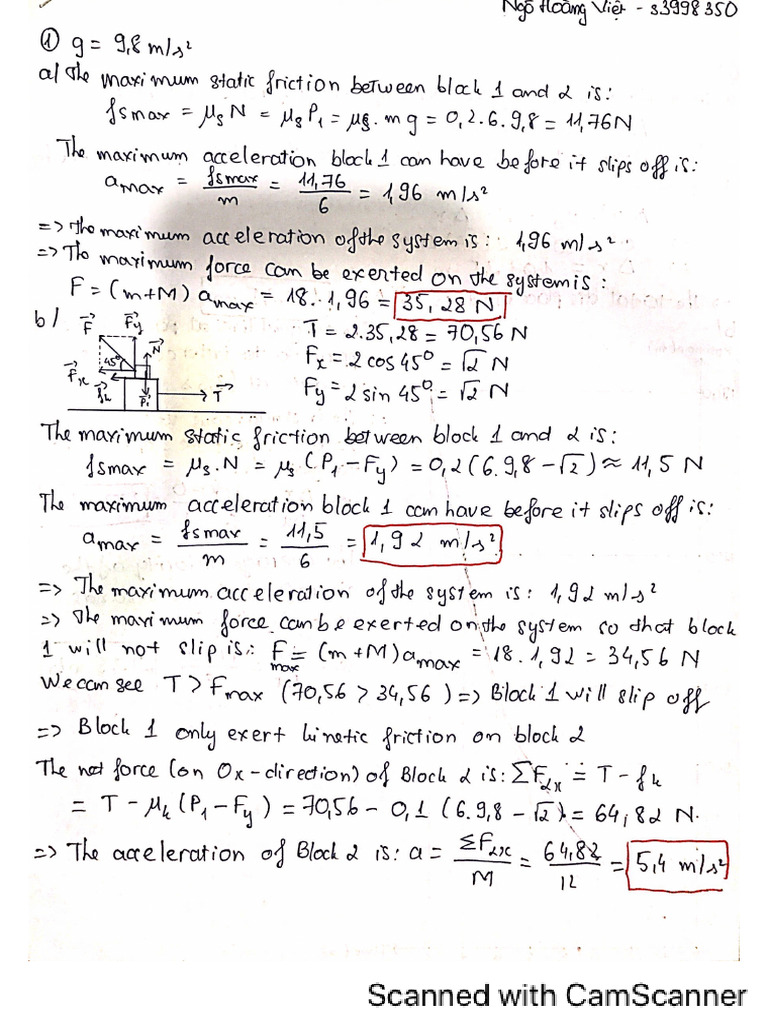 Ngô Hoàng Việt - s3998350
① g = 9,8 m/s²
a/ The maximum static friction between block 1 and 2 is:
fsmax = μsN = μsP₁ = μs. mg = 0,2.6.9,8 = 11,76N
The maximum acceleration block 1 can have before it slips off is:
amax = fsmax/m = 11,76/6 = 1,96 m/s²
=> The maximum acceleration of the system is: 1,96 m/s².
=> The maximum force can be exerted on the system is:
F = (m+M) amax = 18.1,96 = 35,28 N
b/ F⃗ F⃗y T = 2.35,28 = 70,56 N
45° N⃗ Fx = 2 cos 45° = √2 N
F⃗x f⃗k P⃗₁ T⃗ Fy = 2 sin 45° = √2 N
The maximum static friction between block 1 and 2 is:
fsmax = μs.N = μs (P₁ - Fy) = 0,2 (6.9,8 - √2) ≈ 11,5 N
The maximum acceleration block 1 can have before it slips off is:
amax = fsmax/m = 11,5/6 = 1,92 m/s²
=> The maximum acceleration of the system is: 1,92 m/s²
=> The maximum force can be exerted on the system so that block
1 will not slip is: Fmax = (m+M)amax = 18.1,92 = 34,56 N
We can see T > Fmax (70,56 > 34,56) => Block 1 will slip off
=> Block 1 only exert kinetic friction on block 2
The net force (on Ox-direction) of Block 2 is: ΣF2x = T - fk
= T - μk (P₁ - Fy) = 70,56 - 0,1 (6.9,8 - √2) = 64,82 N.
=> The acceleration of Block 2 is: a = ΣF2x/M = 64,82/12 = 5,4 m/s²
Scanned with CamScanner